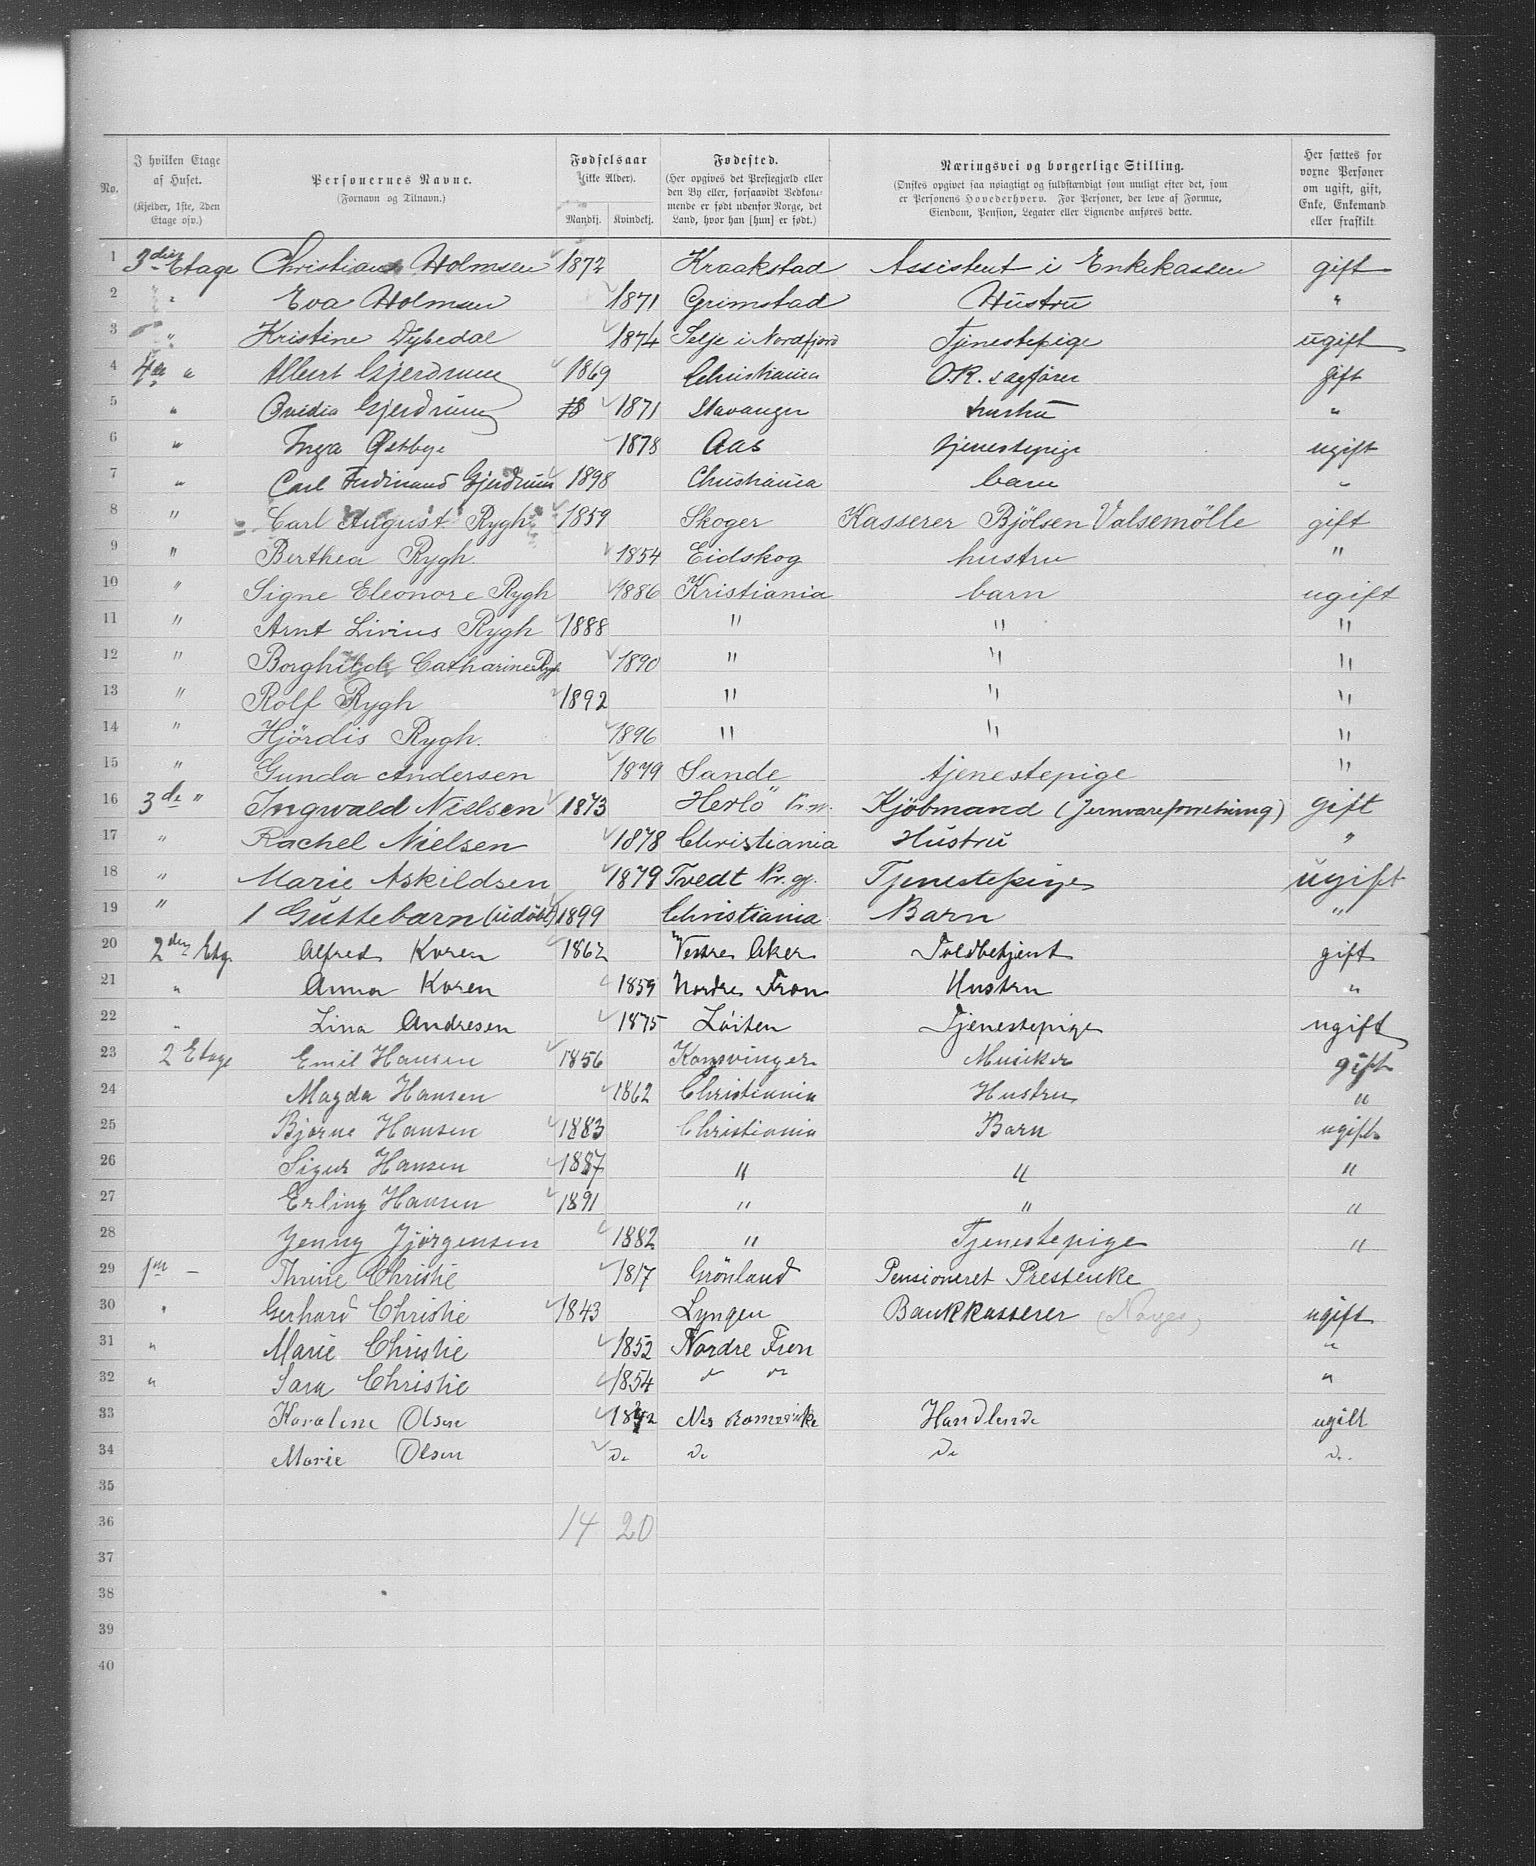 No. | I hvilken Etage af Huset. (Kjelder, 1ste, 2den Etage osv.) | Personernes Navne. (Fornavn og Tilnavn.) | Fødselsaar (ikke Alder). Mandkj. | Kvindekj. | Fødested. (Her opgives det Præstegjæld eller den By eller, forsaavidt Vedkommende er født udenfor Norge, det Land, hvor han [hun] er født.) | Næringsvei og borgerlige Stilling. (Ønskes opgivet saa nøiagtigt og fuldstændigt som muligt efter det, som er Personens Hovederhverv. For Personer, der leve af Formue, Eiendom, Pension, Legater eller Lignende anføres dette. | Her sættes for voxne Personer om ugift, gift, Enke, Enkemand eller fraskilt
1 | 3die Etage | Christian Holmsen | 1872 | | Kraakstad | Assistent i Enkekassen | gift
2 | " | Eva Holmsen | | 1871 | Grimstad | Hustru | "
3 | " | Kristine Dybedal | | 1874 | Selje i Nordfjord | Tjenestepige | ugift
4 | 4de " | Albert Gjerdrum | 1869 | | Christiania | O.R. sagfører | gift
5 | " | Ovidia Gjerdrum | | 1871 | Stavanger | hustru | "
6 | " | Inga Østbye | | 1878 | Aas | tjenestepige | ugift
7 | " | Carl Ferdinand Gjerdrum | 1898 | | Christiania | barn | "
8 | " | Carl August Rygh | 1859 | | Skoger | Kasserer Bjölsen Valsemölle | gift
9 | " | Berthea Rygh. | | 1854 | Eidskog | hustru | "
10 | " | Signe Eleonore Rygh | | 1886 | Kristiania | barn | ugift
11 | " | Arnt Livius Rygh | 1888 | | " | " | "
12 | " | Borghild Catharine Rygh | | 1890 | " | " | "
13 | " | Rolf Rygh | 1892 | | " | " | "
14 | " | Hjördis Rygh. | | 1896 | " | " | "
15 | " | Gunda Andersen | | 1879 | Sande | tjenestepige | "
16 | 3de " | Ingwald Nielsen | 1873 | | Herlö | Kjöbmand (Jernvareforretning) | gift
17 | " | Rachel Nielsen | | 1878 | Christiania | Hustru | "
18 | " | Marie Askildsen | | 1879 | Tvedt Pr. gj. | Tjenestepige | ugift
19 | " | 1 Guttebarn (udöbt) | 1899 | | Christiania | Barn | "
20 | 2den Etg. | Alfred Koren | 1862 | | Vestre Aker | Toldbetjent | gift
21 | " | Anna Koren | | 1859 | Nordre Fron | Hustru | "
22 | " | Lina Andresen | | 1875 | Löiten | Tjenestepige | ugift
23 | 2 Etage | Emil Hansen | 1856 | | Kongsvinger | Musiker | gift
24 | | Magda Hansen | | 1862 | Christiania | Hustru | "
25 | | Bjarne Hansen | 1883 | | Christiania | Barn | ugift
26 | | Sigur Hansen | 1887 | | " | " | "
27 | | Erling Hansen | 1891 | | " | " | "
28 | | Jenny Jjørgensen | | 1882 | " | Tjenestepige | "
29 | 1ste – | Thrine Christie | | 1817 | Grönland | Pensioneret Prestenke
30 | " | Gerhard Christie | 1843 | | Lyngen | Bankkasserer (Norges) | ugift
31 | " | Marie Christie | | 1852 | Nordre Fron | | "
32 | " | Sara Christie | | 1854 | " " | | "
33 | | Karoline Olsen | | | Nes Romerike | Handlende | ugift
34 | | Marie Olsen | | Do | Do | Do | Do.
35
36 | | | 14 | 20
37
38
39
40